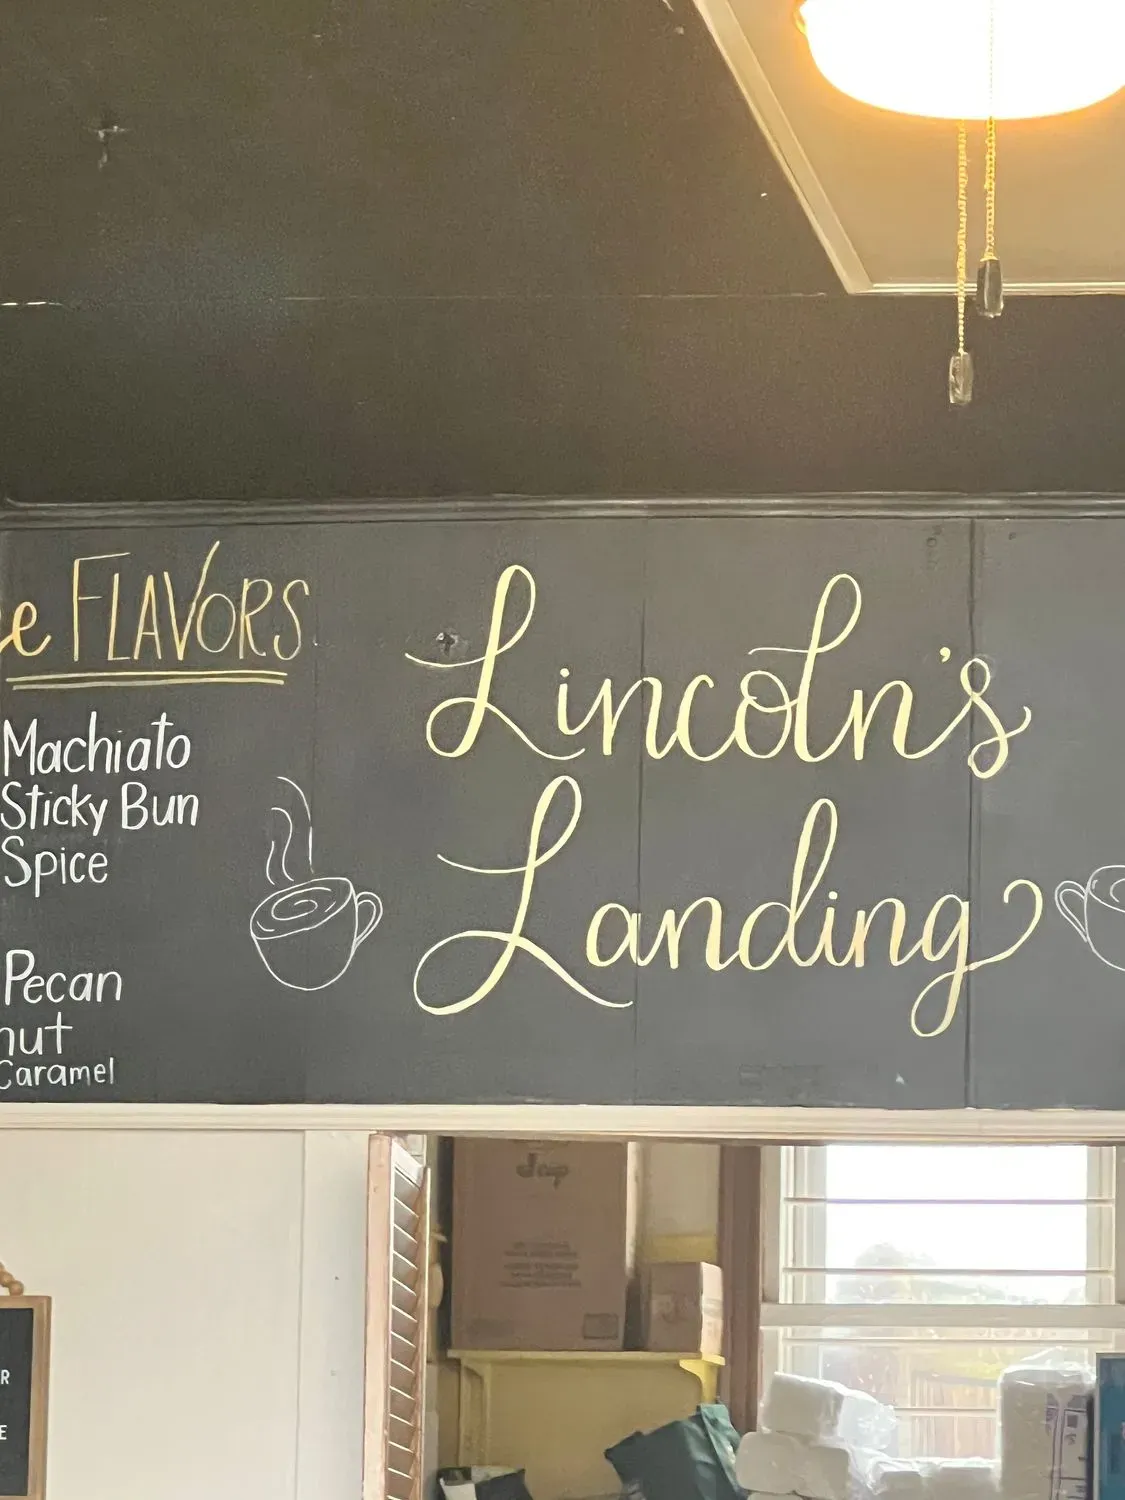 e FLAVORS
Machiato
Sticky Bun
Spice
Pecan
nut
Caramel
Lincoln's
Landing
J cup
R
E